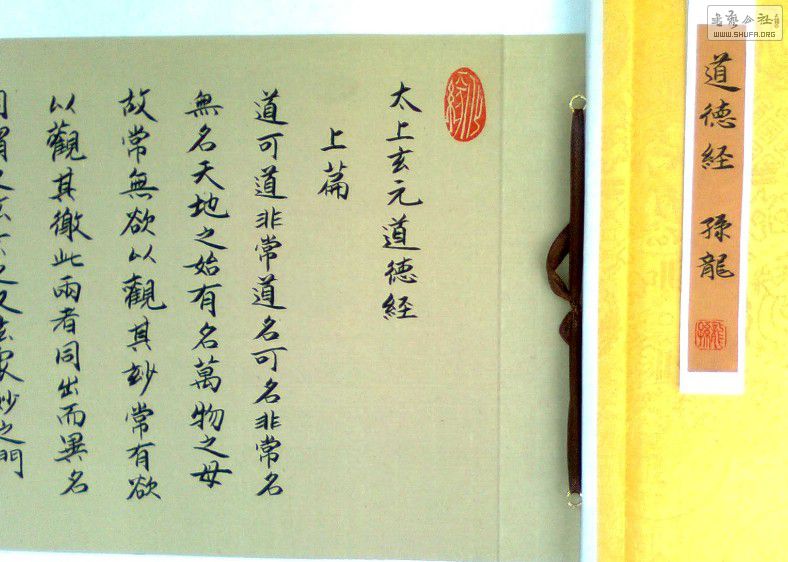 書藝公社
WWW.SHUFA.ORG
道德経 孫龍
太上玄元道德経
上篇
道可道非常道名可名非常名
無名天地之始有名萬物之母
故常無欲以觀其玅常有欲
以觀其徼此兩者同出而異名
同謂之玄玄之又玄衆妙之門